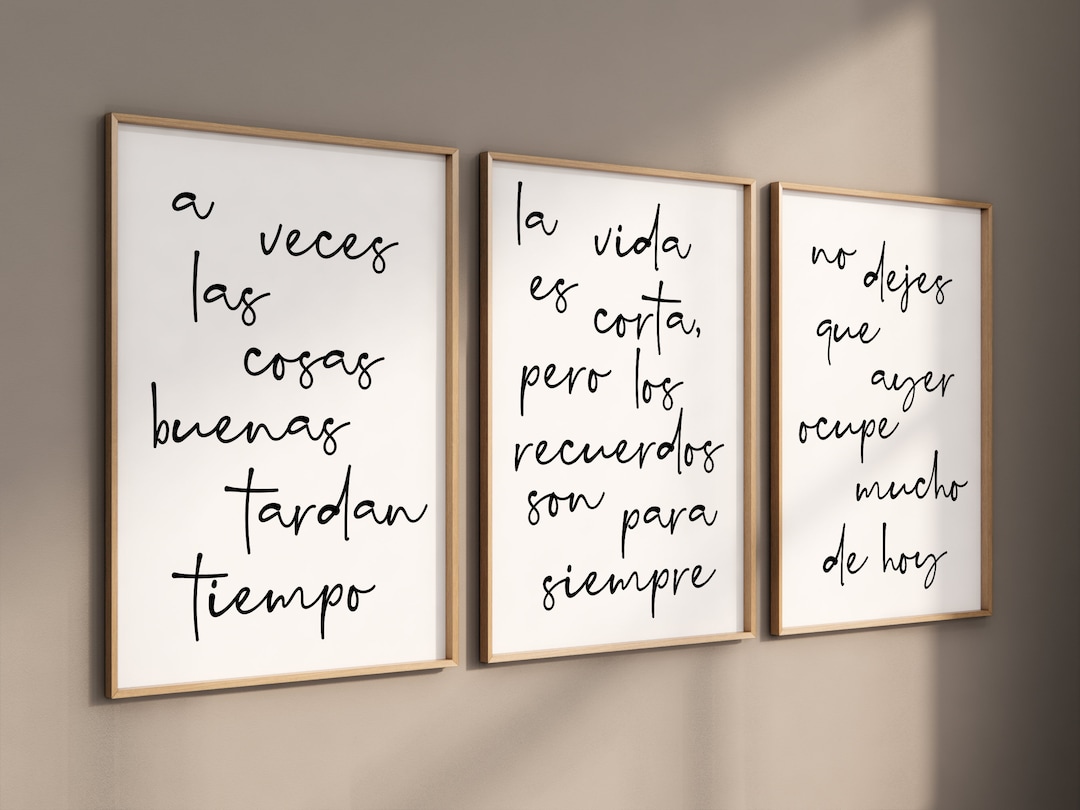 a
veces
las
cosas
buenas
tardan
tiempo
la vida
es
corta,
pero los
recuerdos
son para
siempre
no dejes
que
ayer
ocupe
mucho
de hoy